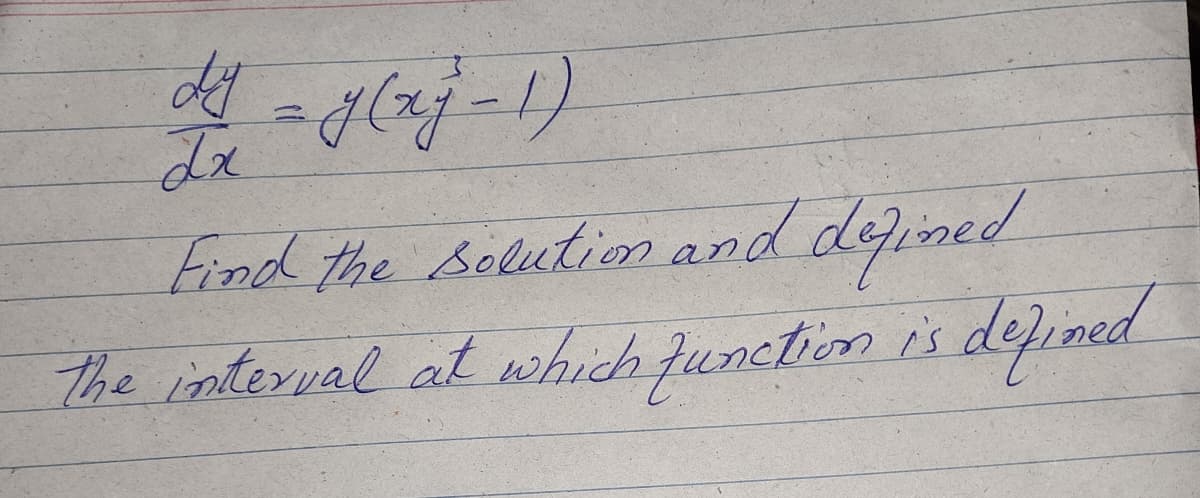 dy/dx = y(xy³ - 1)
Find the solution and defined
the interval at which function is defined